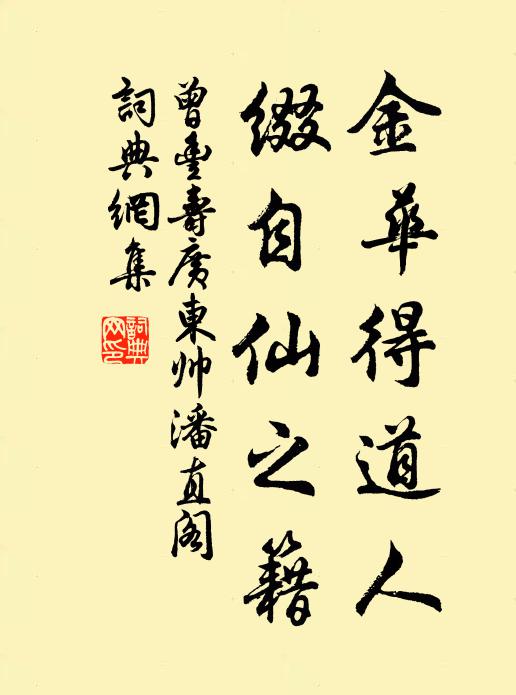 金華得道人
綴自仙之籍
曾豐壽廣東帥潘直閣
詞典網集
詞典
网印